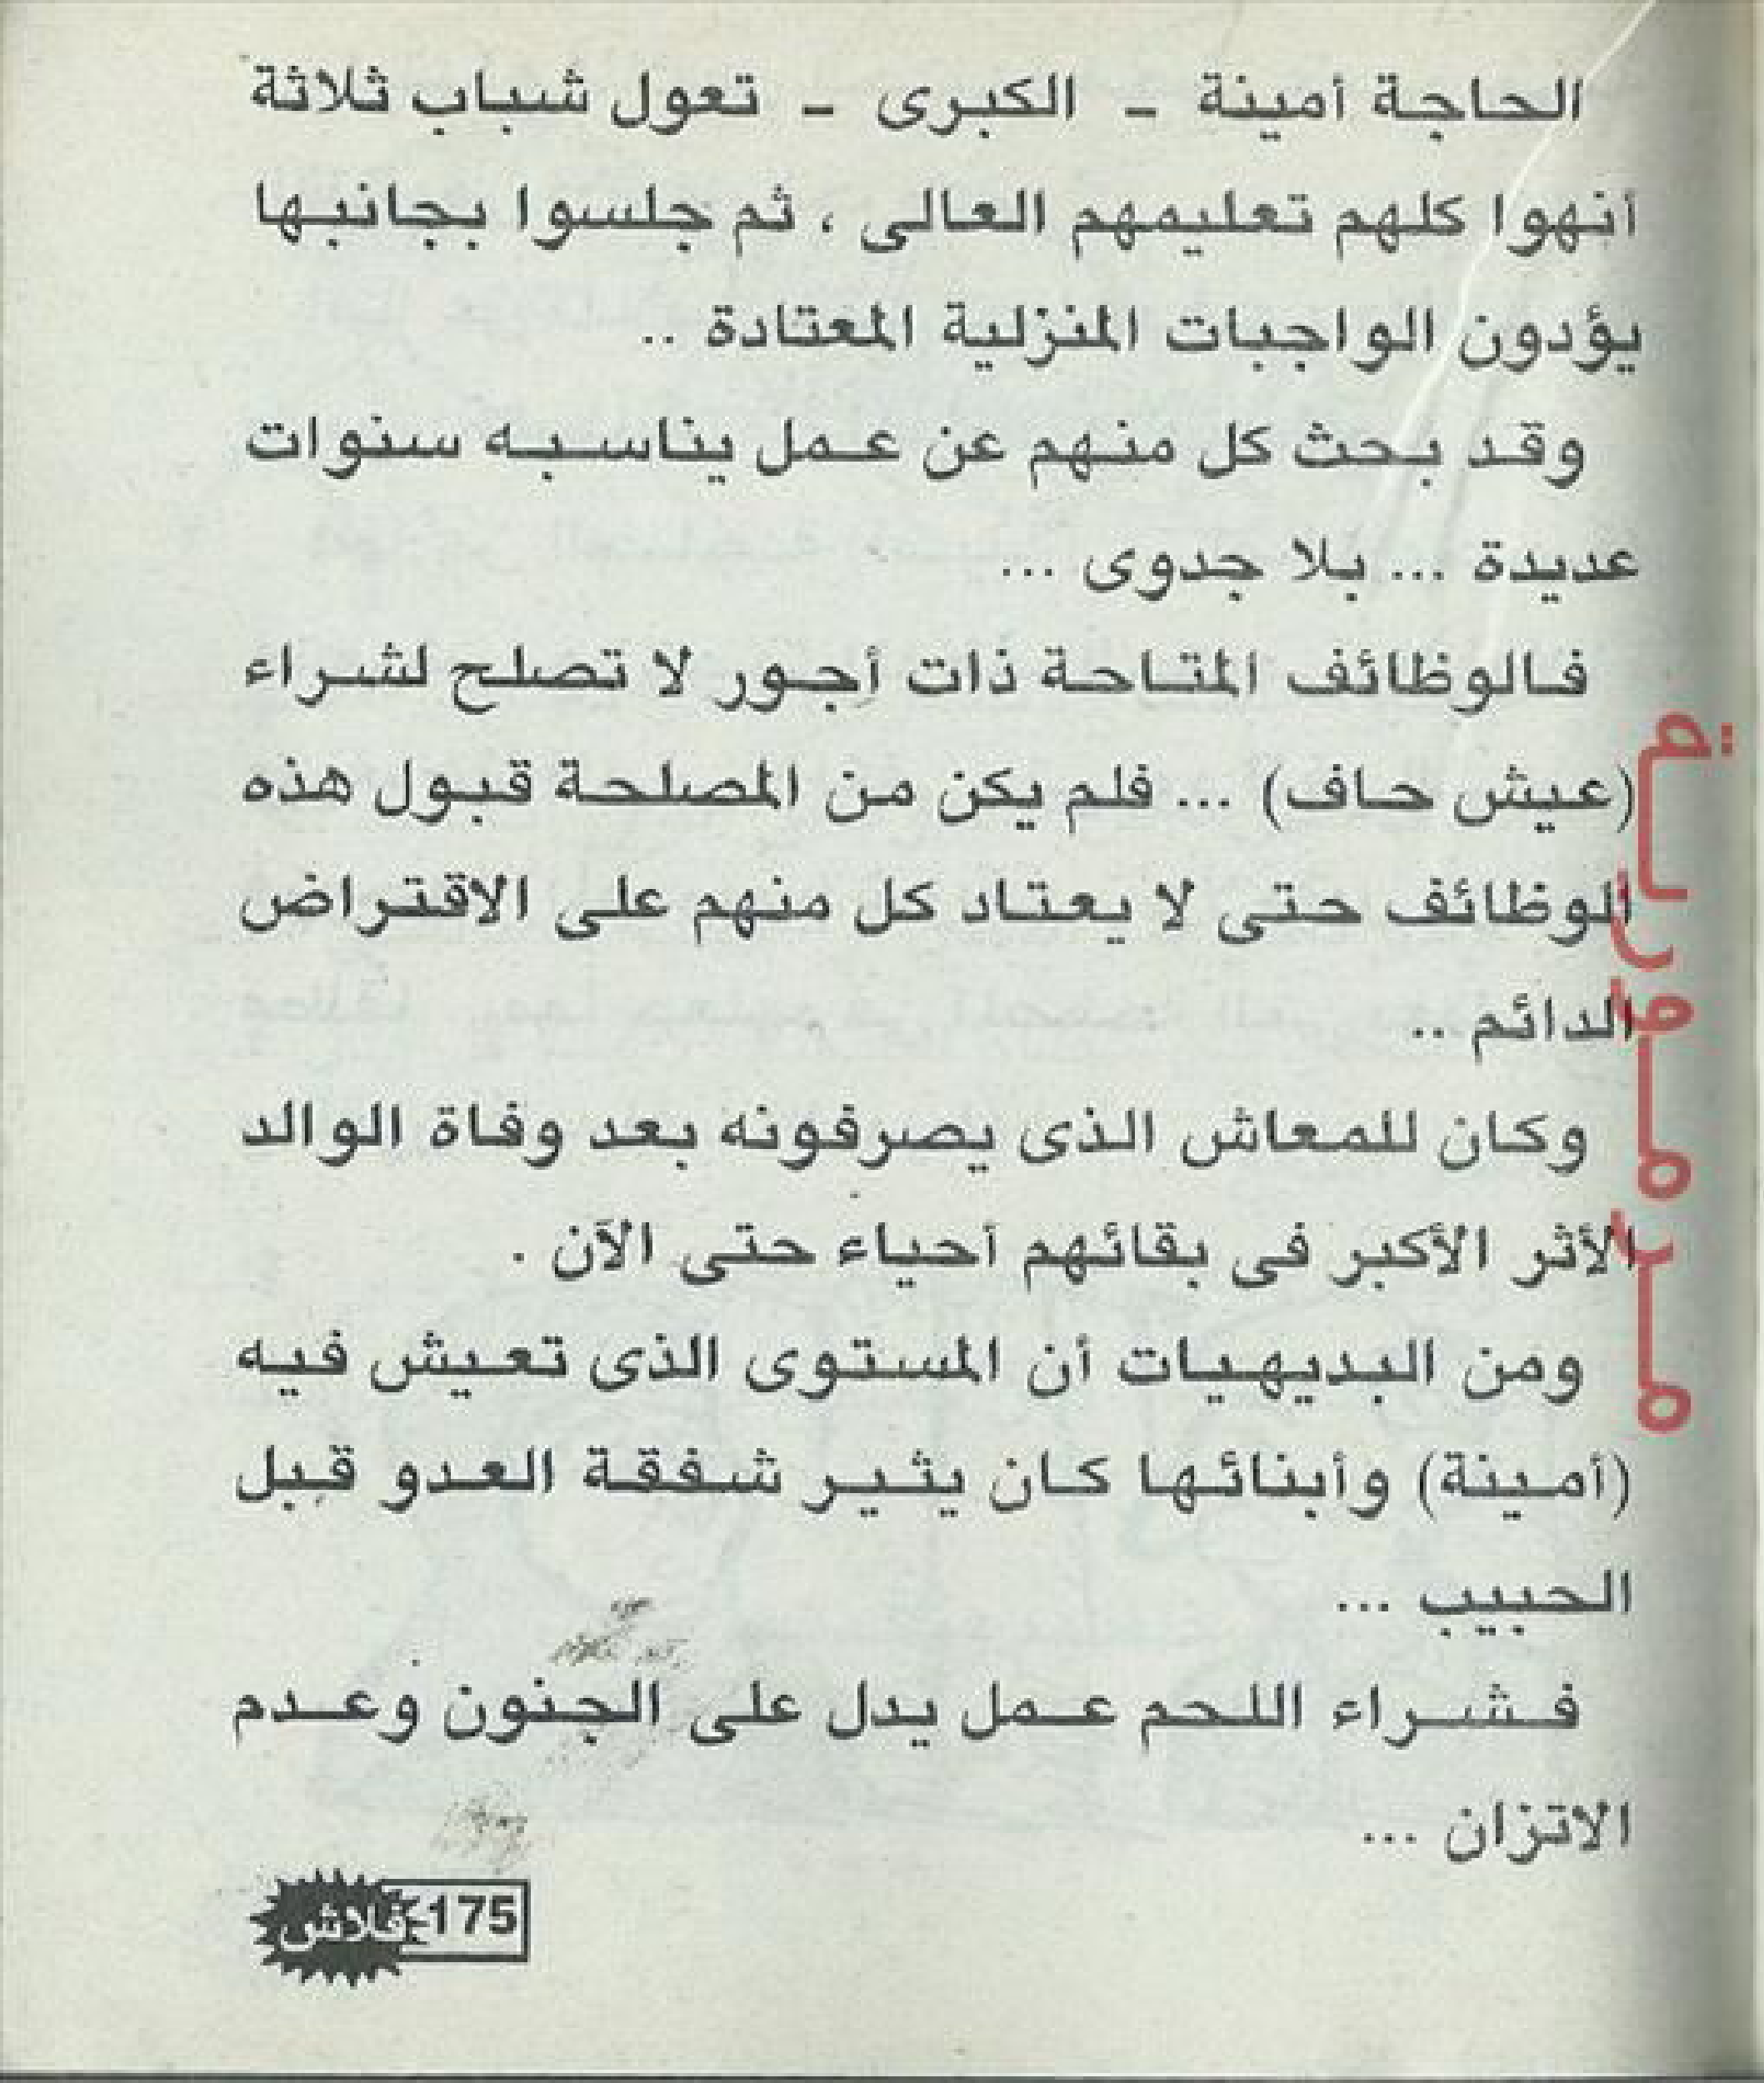 الحاجة أمينة - الكبرى - تعول شباب ثلاثة
أنهوا كلهم تعليمهم العالى ، ثم جلسوا بجانبها
يؤدون الواجبات المنزلية المعتادة ..
وقد بحث كل منهم عن عمل يناسبه سنوات
عديدة ... بلا جدوى ...
فالوظائف المتاحة ذات أجور لا تصلح لشراء
(عيش حاف) ... فلم يكن من المصلحة قبول هذه
الوظائف حتى لا يعتاد كل منهم على الاقتراض
الدائم ..
وكان للمعاش الذى يصرفونه بعد وفاة الوالد
الأثر الأكبر فى بقائهم أحياء حتى الآن .
ومن البديهيات أن المستوى الذى تعيش فيه
(أمينة) وأبنائها كان يثير شفقة العدو قبل
الحبيب ...
فشراء اللحم عمل يدل على الجنون وعدم
الاتزان ...
175
فلاش
مرمورية